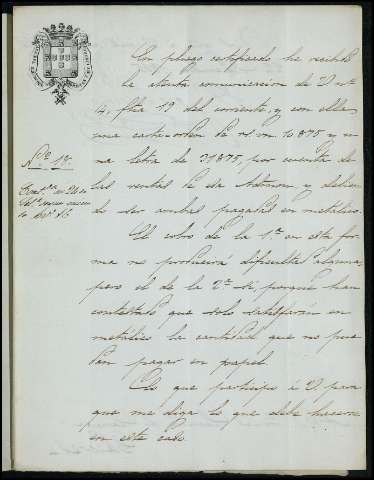 Con pliego certificado he recibido
la atenta comunicacion de V nº
4, fha 19 del corriente, y con ella
una carta-orden de rs vn 10875 y u-
na letra de 31875, por cuenta de
las rentas de la Aduana y debien-
do ser ambas pagadas en metalico.
El cobro de la 1ª en esta for-
ma no producirá dificultad alguna,
pero el de la 2ª si, porque han
contestado que solo satisfarán en
metálico la cantidad que no pue-
dan pagar en papel.
Lo que participo á V para
que me diga lo que debe hacerse
en este caso.
Nº 18.